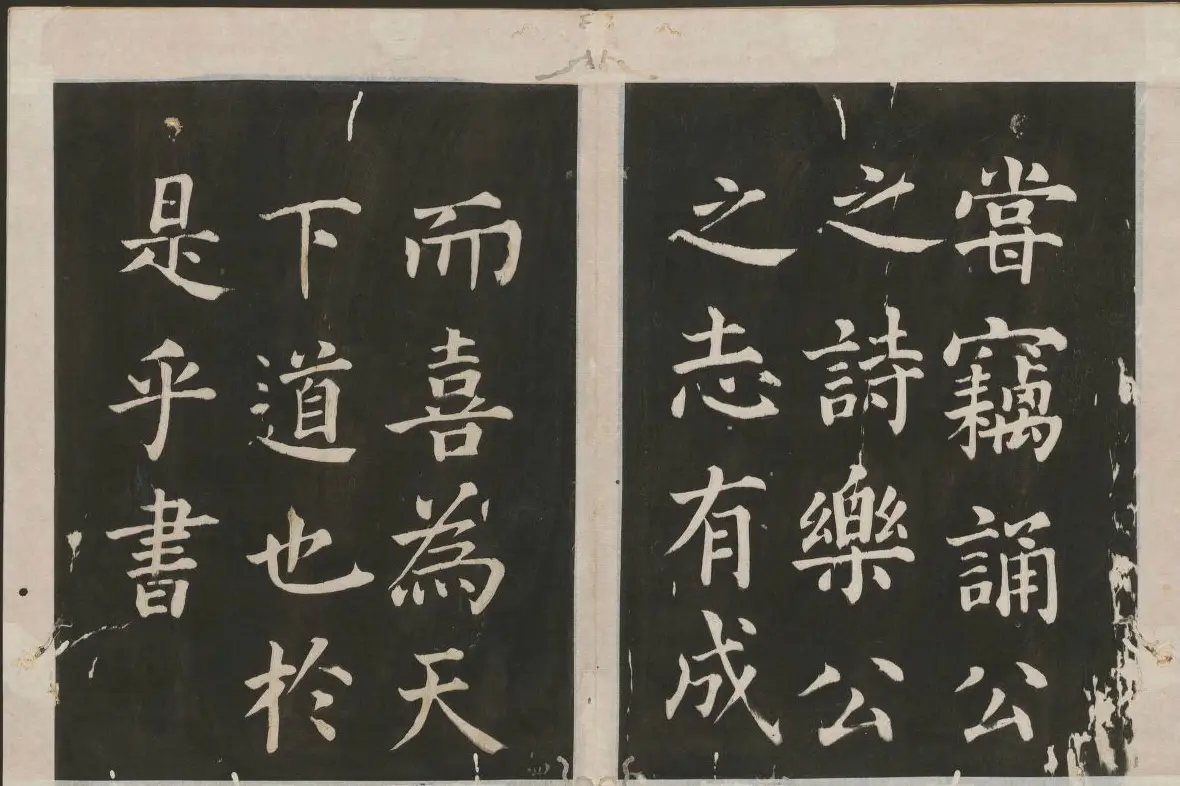 嘗竊誦公
之詩樂公
之志有成
而喜為天
下道也於
是乎書